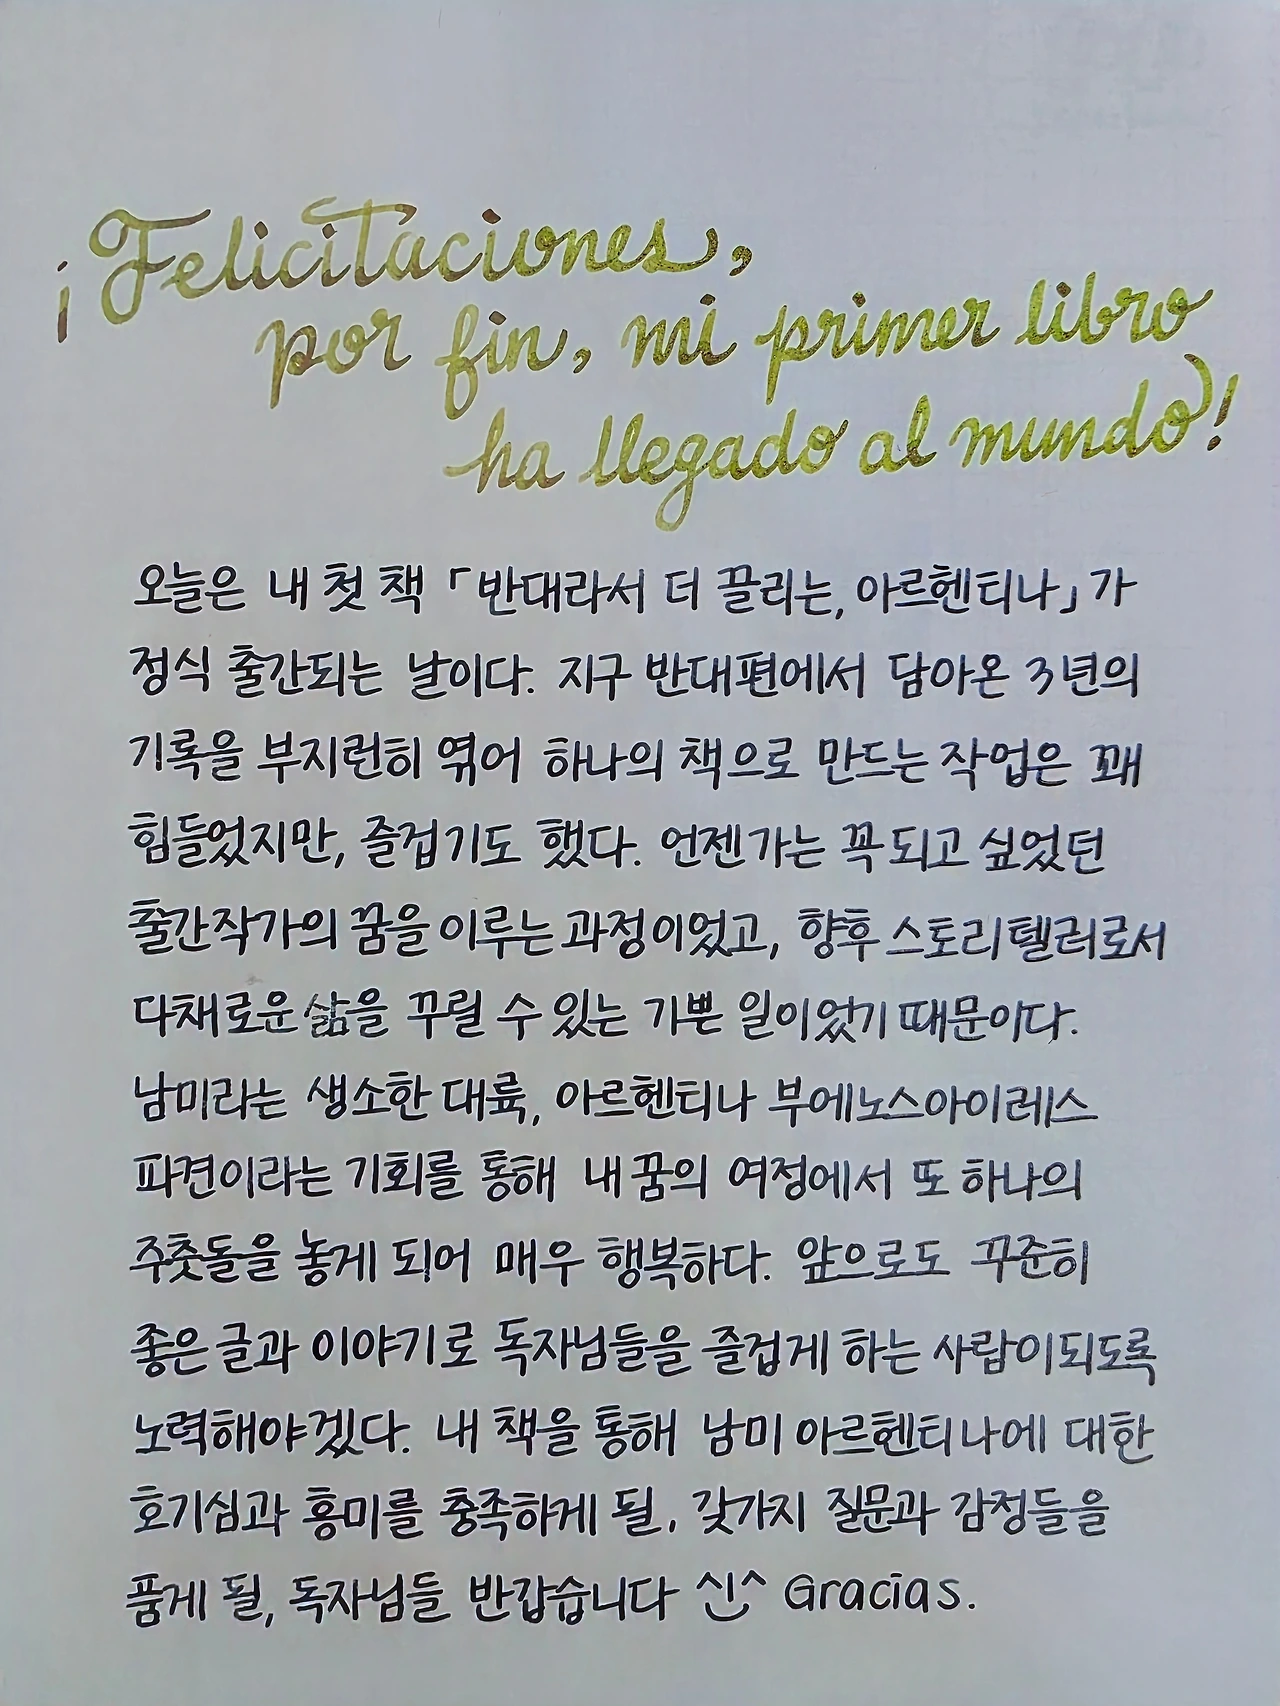 ¡Felicitaciones,
por fin, mi primer libro
ha llegado al mundo!
오늘은 내 첫 책 「반대라서 더 끌리는, 아르헨티나」가
정식 출간되는 날이다. 지구 반대편에서 담아온 3년의
기록을 부지런히 엮어 하나의 책으로 만드는 작업은 꽤
힘들었지만, 즐겁기도 했다. 언젠가는 꼭 되고 싶었던
출간작가의 꿈을 이루는 과정이었고, 향후 스토리텔러로서
다채로운 삶을 꾸릴 수 있는 기쁜 일이었기 때문이다.
남미라는 생소한 대륙, 아르헨티나 부에노스아이레스
파견이라는 기회를 통해 내 꿈의 여정에서 또 하나의
주춧돌을 놓게 되어 매우 행복하다. 앞으로도 꾸준히
좋은 글과 이야기로 독자님들을 즐겁게 하는 사람이되도록
노력해야겠다. 내 책을 통해 남미 아르헨티나에 대한
호기심과 흥미를 충족하게 될, 갖가지 질문과 감정들을
품게 될, 독자님들 반갑습니다 ^신^ Gracias.